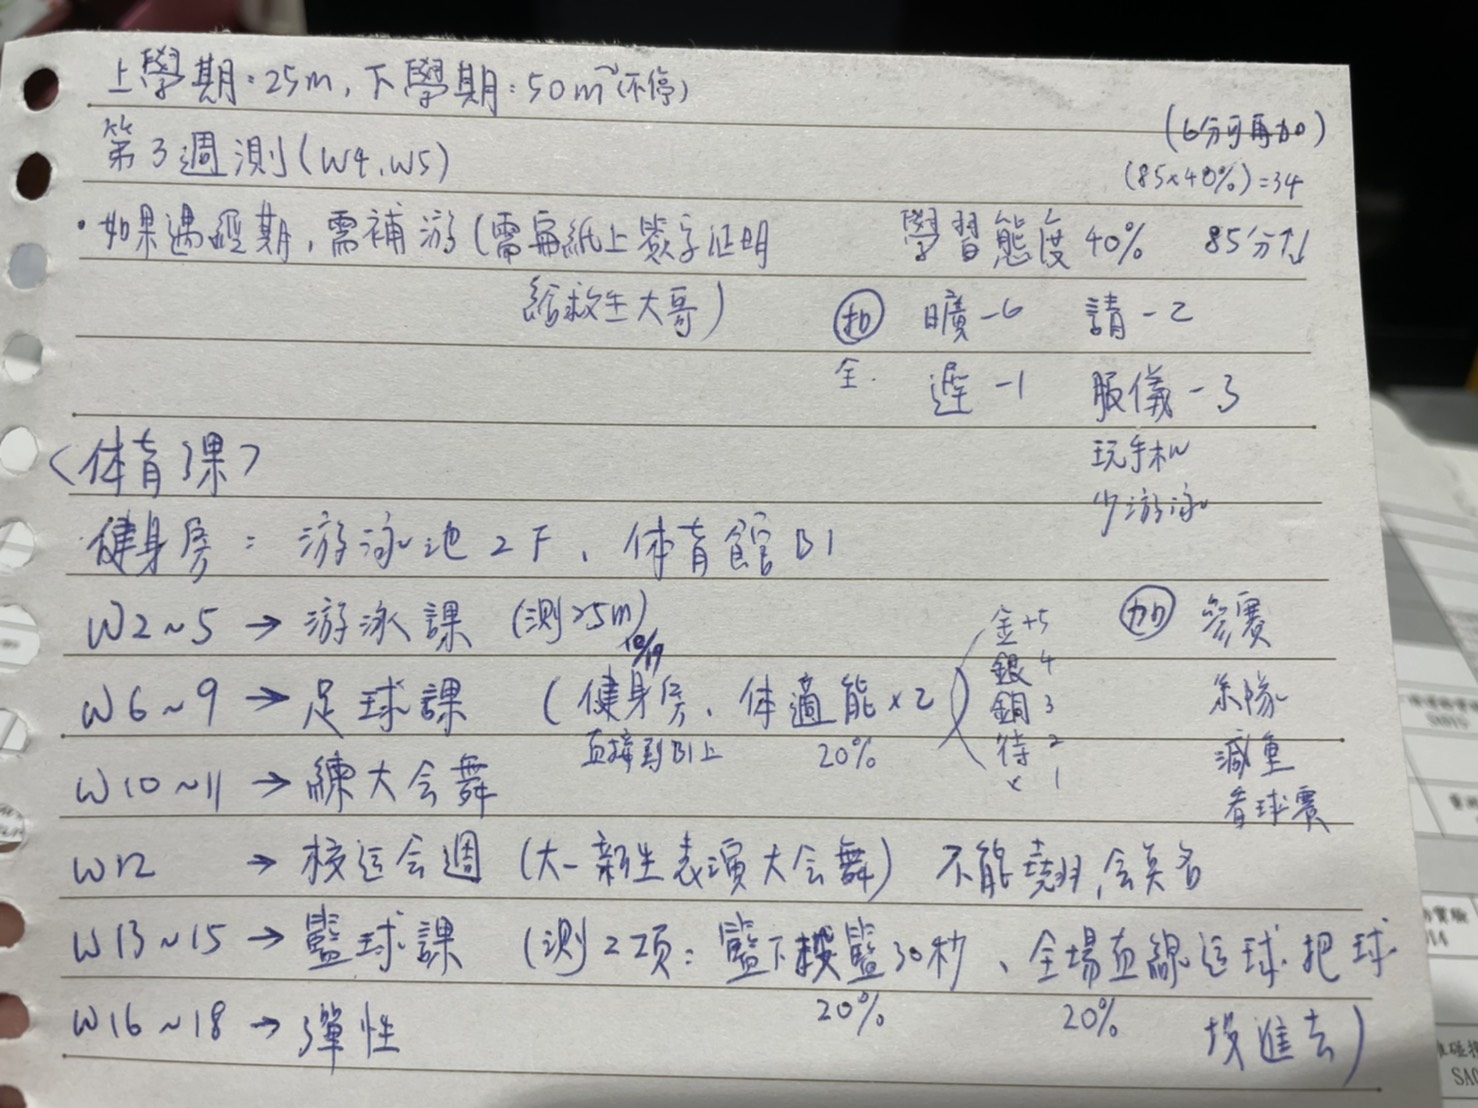 上學期：25m，下學期：50m（不停）
第3週測（W4、W5）
（6分可再加）
（85×40%）=34
・如果遇經期，需補游（需寫紙上簽字证明
給救生大哥）
學習態度 40% 85分↑↓
扣 曠-6 請-2
全. 遲-1 服儀-3
玩手机
少游泳
〈体育課〉
健身房：游泳池2F、体育館B1
W2~5 → 游泳課（測25m）
10/19
W6~9 → 足球課（健身房、体適能×2）
直接到B1上 20%
金+5
銀 4
銅 3
待 2
× 1
加 參賽
系隊
減重
看球賽
W10~11 → 練大会舞
W12 → 校运会週（大一新生表演大会舞）不能蹺，会点名
W13~15 → 籃球課（測2项：籃下投籃30秒、全場直線运球把球
投進去）
20% 20%
W16~18 → 彈性